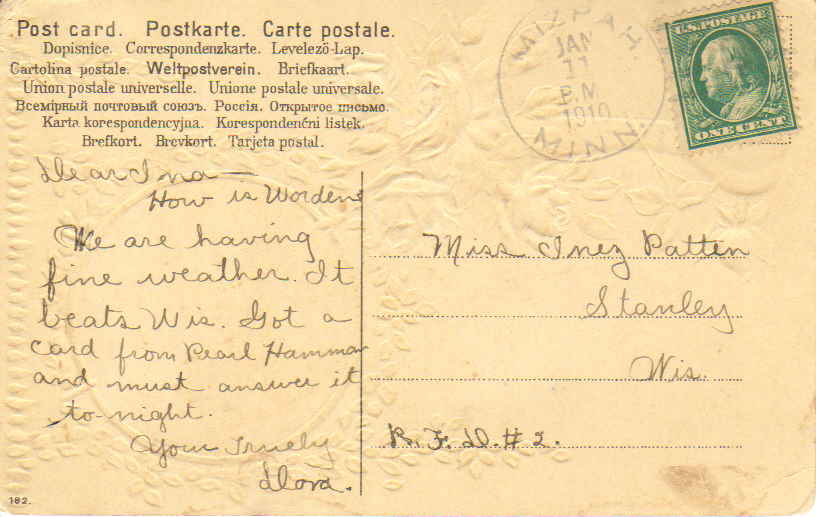 Post card. Postkarte. Carte postale.
Dopisnice. Correspondenzkarte. Levelező-Lap.
Cartolina postale. Weltpostverein. Briefkaart.
Union postale universelle. Unione postale universale.
Всемірный почтовый союзъ. Россія. Открытое письмо.
Karta korespondencyjna. Korespondenční listek.
Brefkort. Brevkort. Tarjeta postal.
MIZPAH
JAN
11
P.M.
1910
MINN.
U.S. POSTAGE
ONE CENT
Dear Ina —
How is Worden
We are having
fine weather. It
beats Wis. Got a
card from Pearl Hammar
and must answer it
to-night.
Your Truely
Dora.
Miss Inez Patten
Stanley
Wis.
R. F. D. # 2.
182.